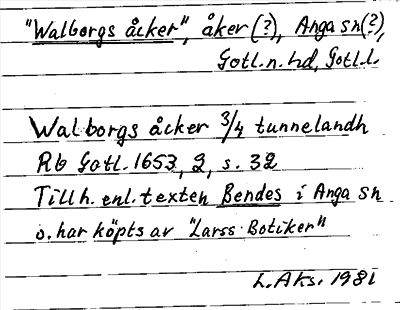 "Walborgs åcker", åker (?), Anga sn (?),
Gotl. n. hd, Gotl. l.
Walborgs åcker 3/4 tunnelandh
Rb Gotl. 1653, 2, s. 32
Tillh. enl. texten Bendes i Anga sn
o. har köpts av "Larss Botiker"
L. Aks. 1981